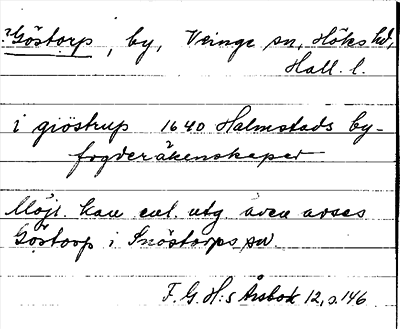 ?Göstorp, by, Veinge sn, Höks hd,
Hall. l.
i giöstrup 1640 Halmstads by-
fogderäkenskaper
Möjl. kan enl. utg. även avses
Göstorp i Snöstorps sn
F.G.H:s Årsbok 12, s. 146